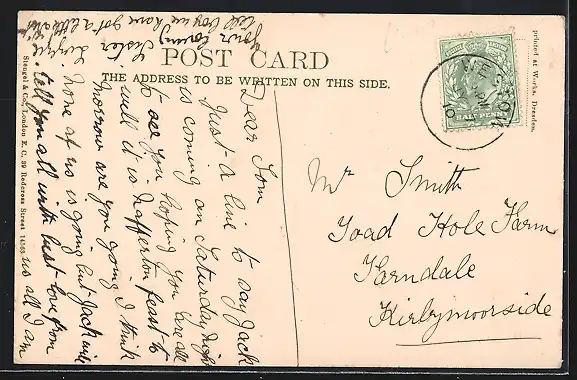 POST CARD
THE ADDRESS TO BE WRITTEN ON THIS SIDE.
Dear Tom
Just a line to say Jack
is coming on Saturday night
to see you hoping you are all
well it is Nafferton feast to
morrow are you going I think
none of us is going but Jack will
tell you all with best love from
us all I am
your loving sister Lizzie
tell boy we have got a little
Mr Smith
Toad Hole Farm
Farndale
Kirbymoorside
HALF PENNY
printed at Works, Dresden.
Stengel & Co., London E. C. 39 Redcross Street